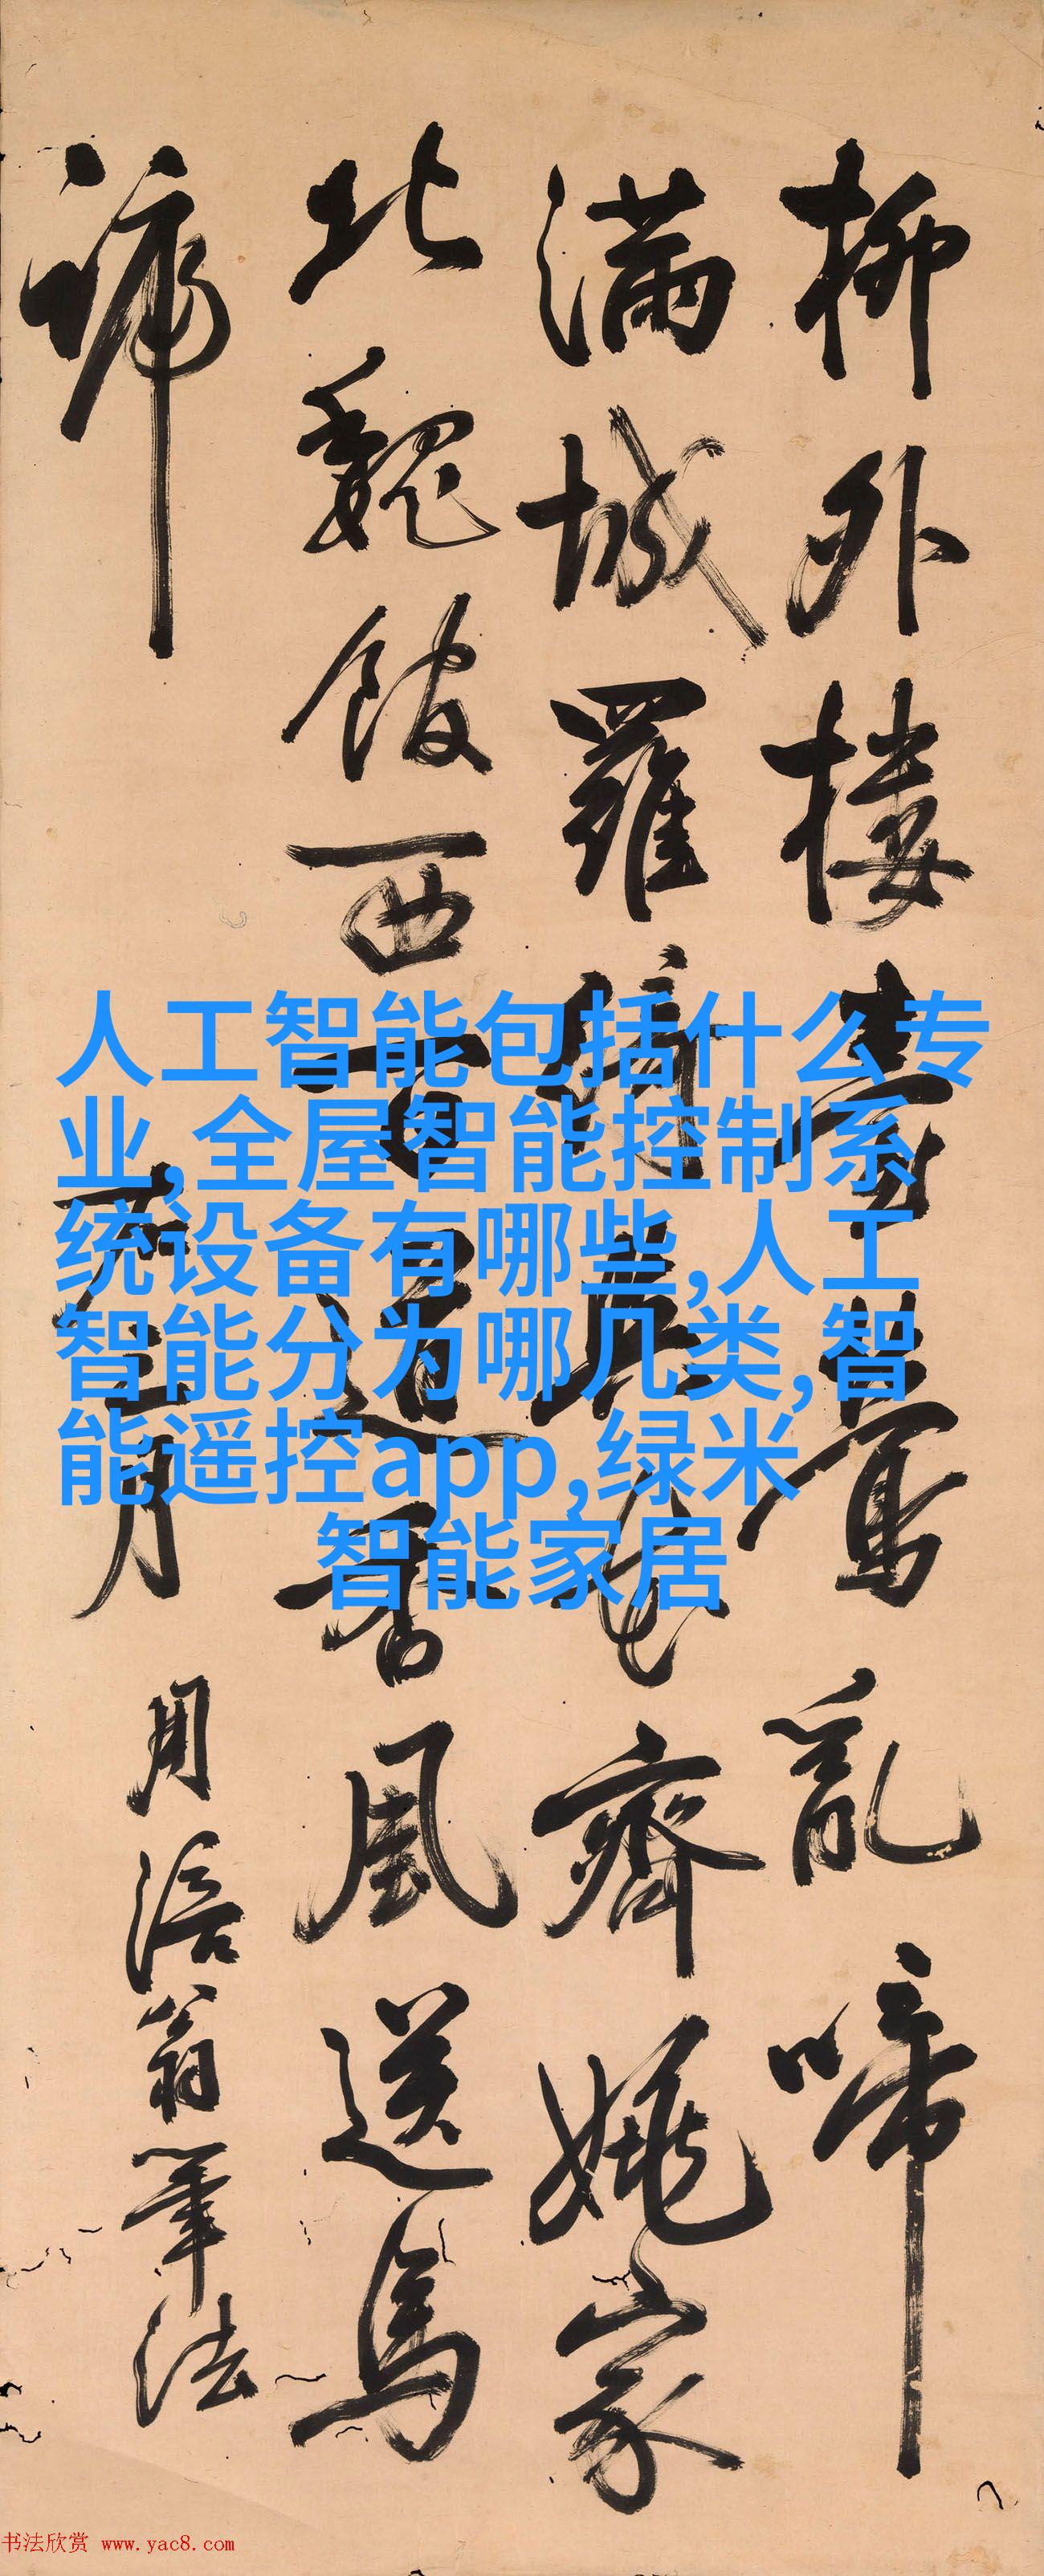 柳外樓鶯亂啼
滿城羅花齊姚家
北魏館西道香風送馬
蹄月
用涪翁筆法
人工智能包括什么专
业,全屋智能控制系
统设备有哪些,人工
智能分为哪几类,智
能遥控app,绿米
智能家居
书法欣赏 www.yac8.com